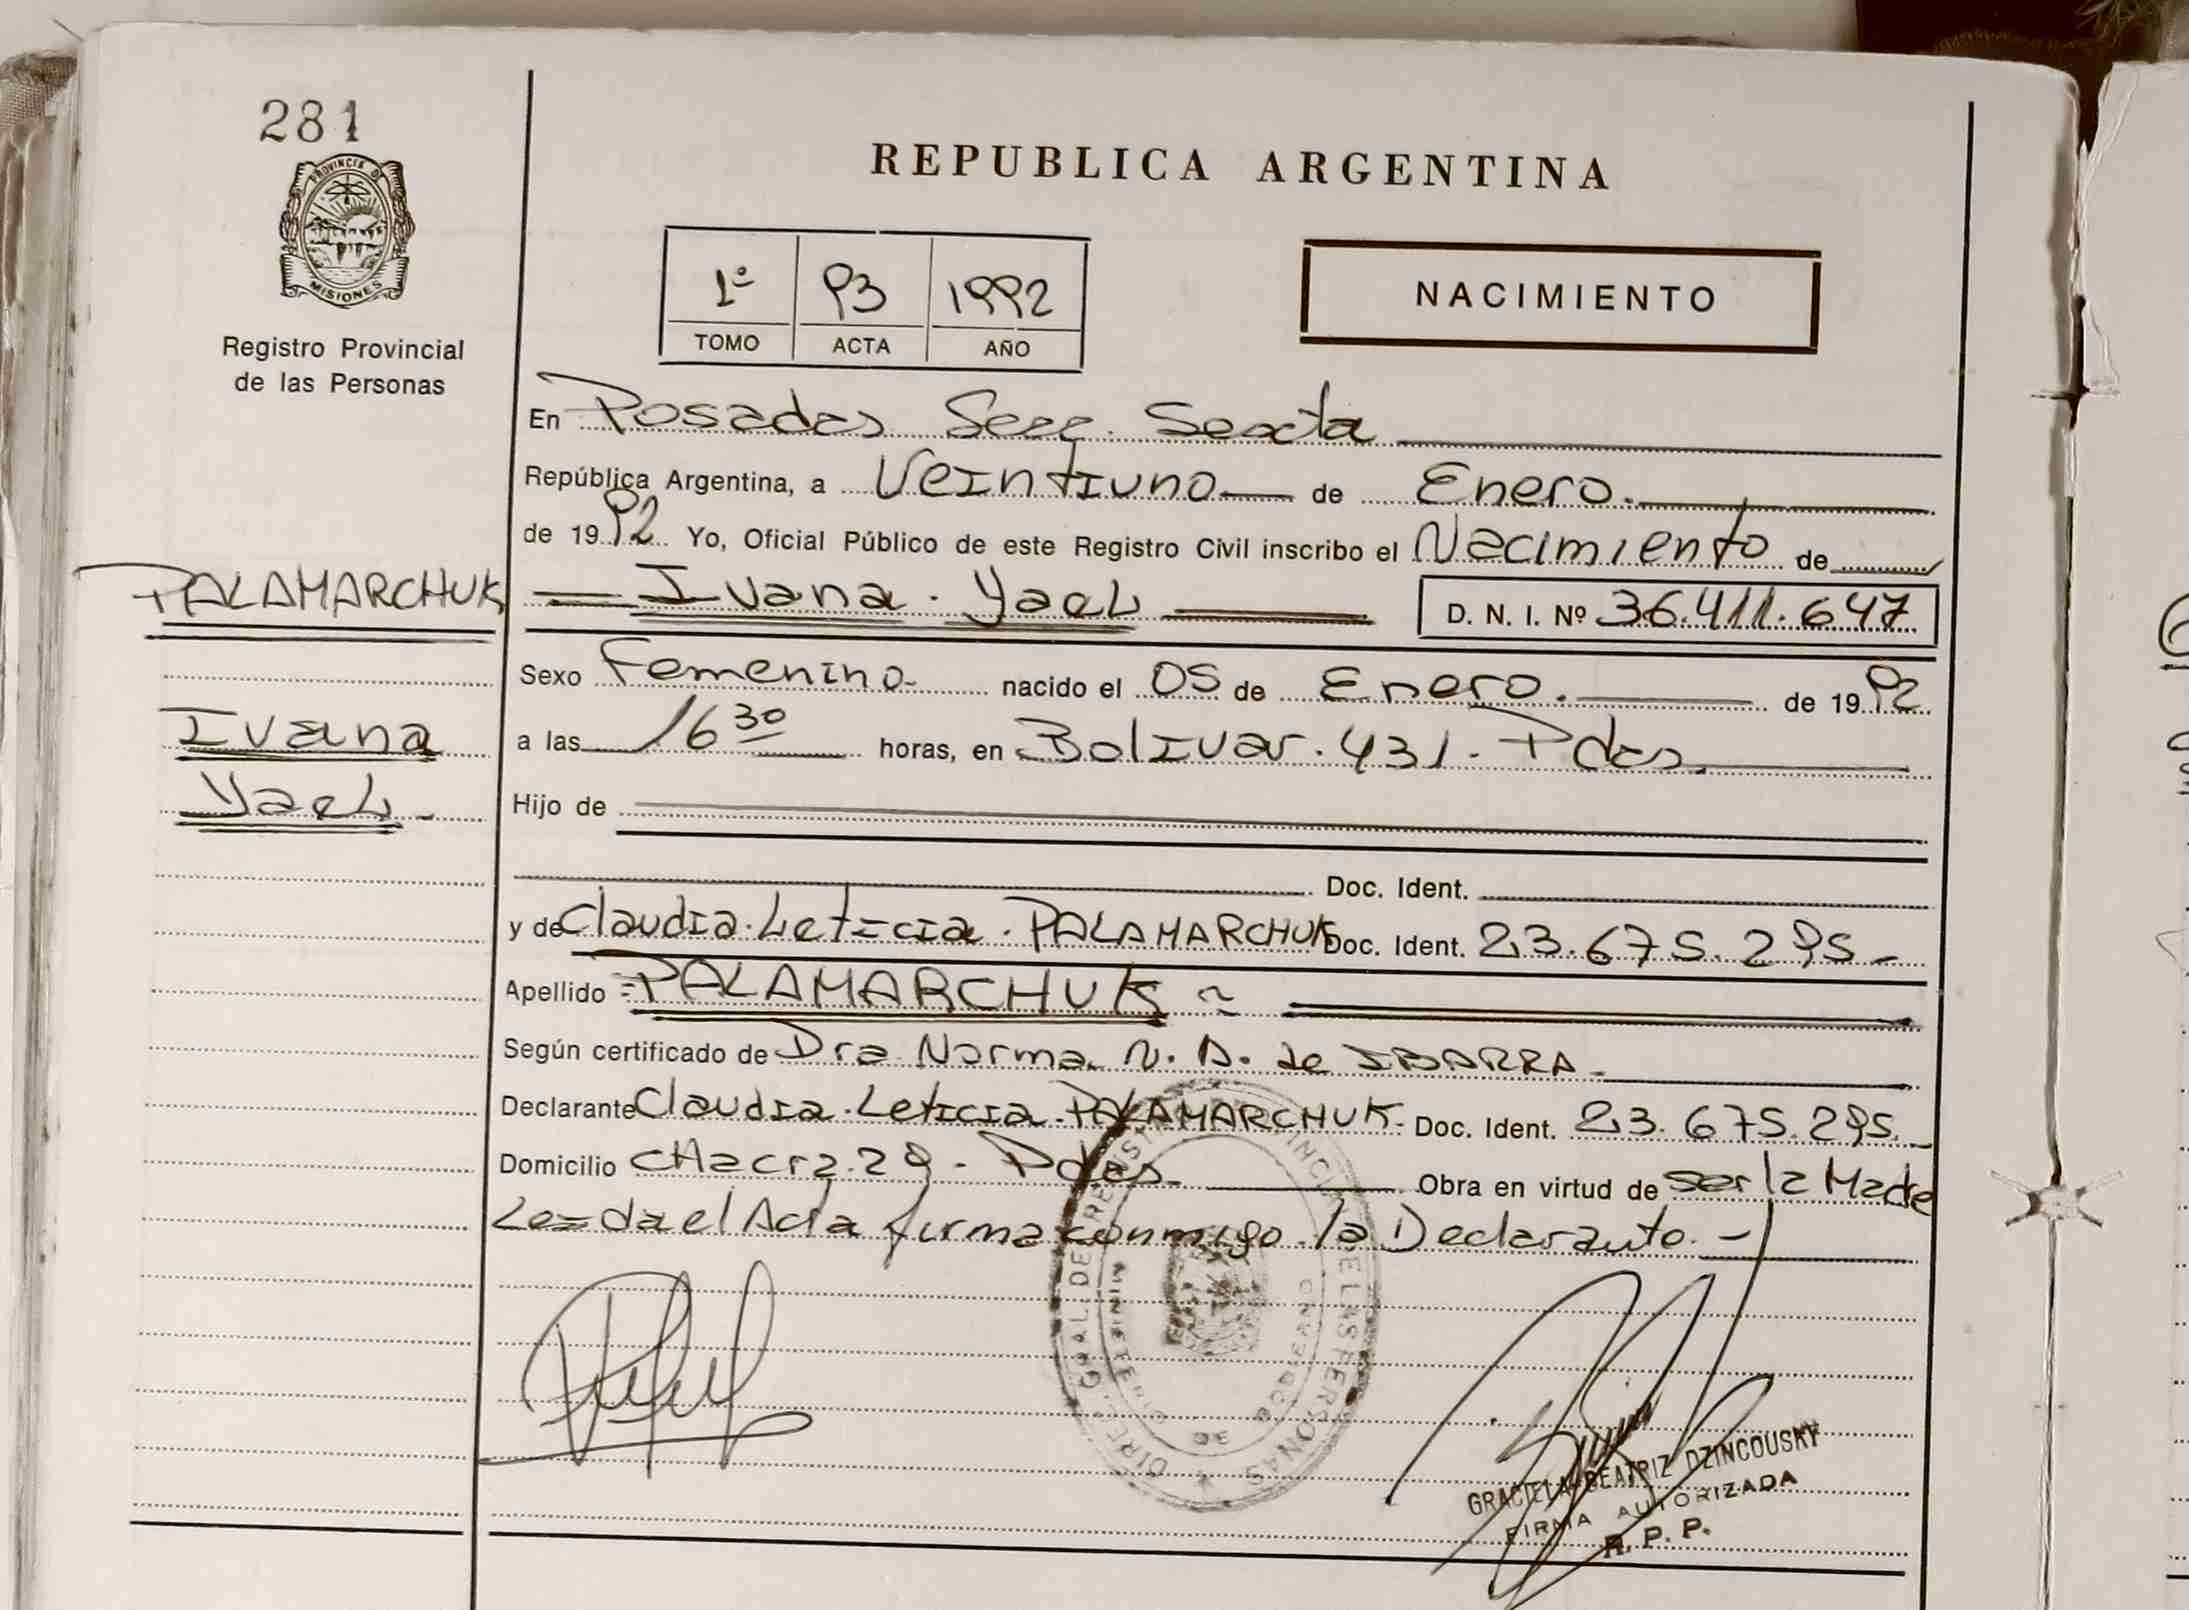 281
PROVINCIA DE
MISIONES
Registro Provincial
de las Personas
REPUBLICA ARGENTINA
1º 93 1992
TOMO ACTA AÑO
NACIMIENTO
En Posadas Secc. Sexta
República Argentina, a Veintiuno de Enero.
de 1992 Yo, Oficial Público de este Registro Civil inscribo el Nacimiento de
PALAMARCHUK
Ivana Yael
Ivana. Yael D. N. I. Nº 36.411.647
Sexo Femenino nacido el 05 de Enero. de 1992
a las 16 30 horas, en Bolivar. 431. Pdas.
Hijo de
Doc. Ident.
y de Claudia. Leticia. PALAMARCHUK Doc. Ident. 23.675.295.-
Apellido PALAMARCHUK
Según certificado de Dra. Norma. N. A. de IBARRA
Declarante Claudia. Leticia. PALAMARCHUK. Doc. Ident. 23.675.295.-
Domicilio CHacra. 28. Pdas. Obra en virtud de ser la Madre
Leída el Acta firma conmigo la Declarante.-
DIREC. GRAL. DE REGISTRO PROVINCIAL DE LAS PERSONAS
MINISTERIO DE GOBIERNO
GRACIELA BEATRIZ DZINCOUSKY
FIRMA AUTORIZADA
R. P. P.